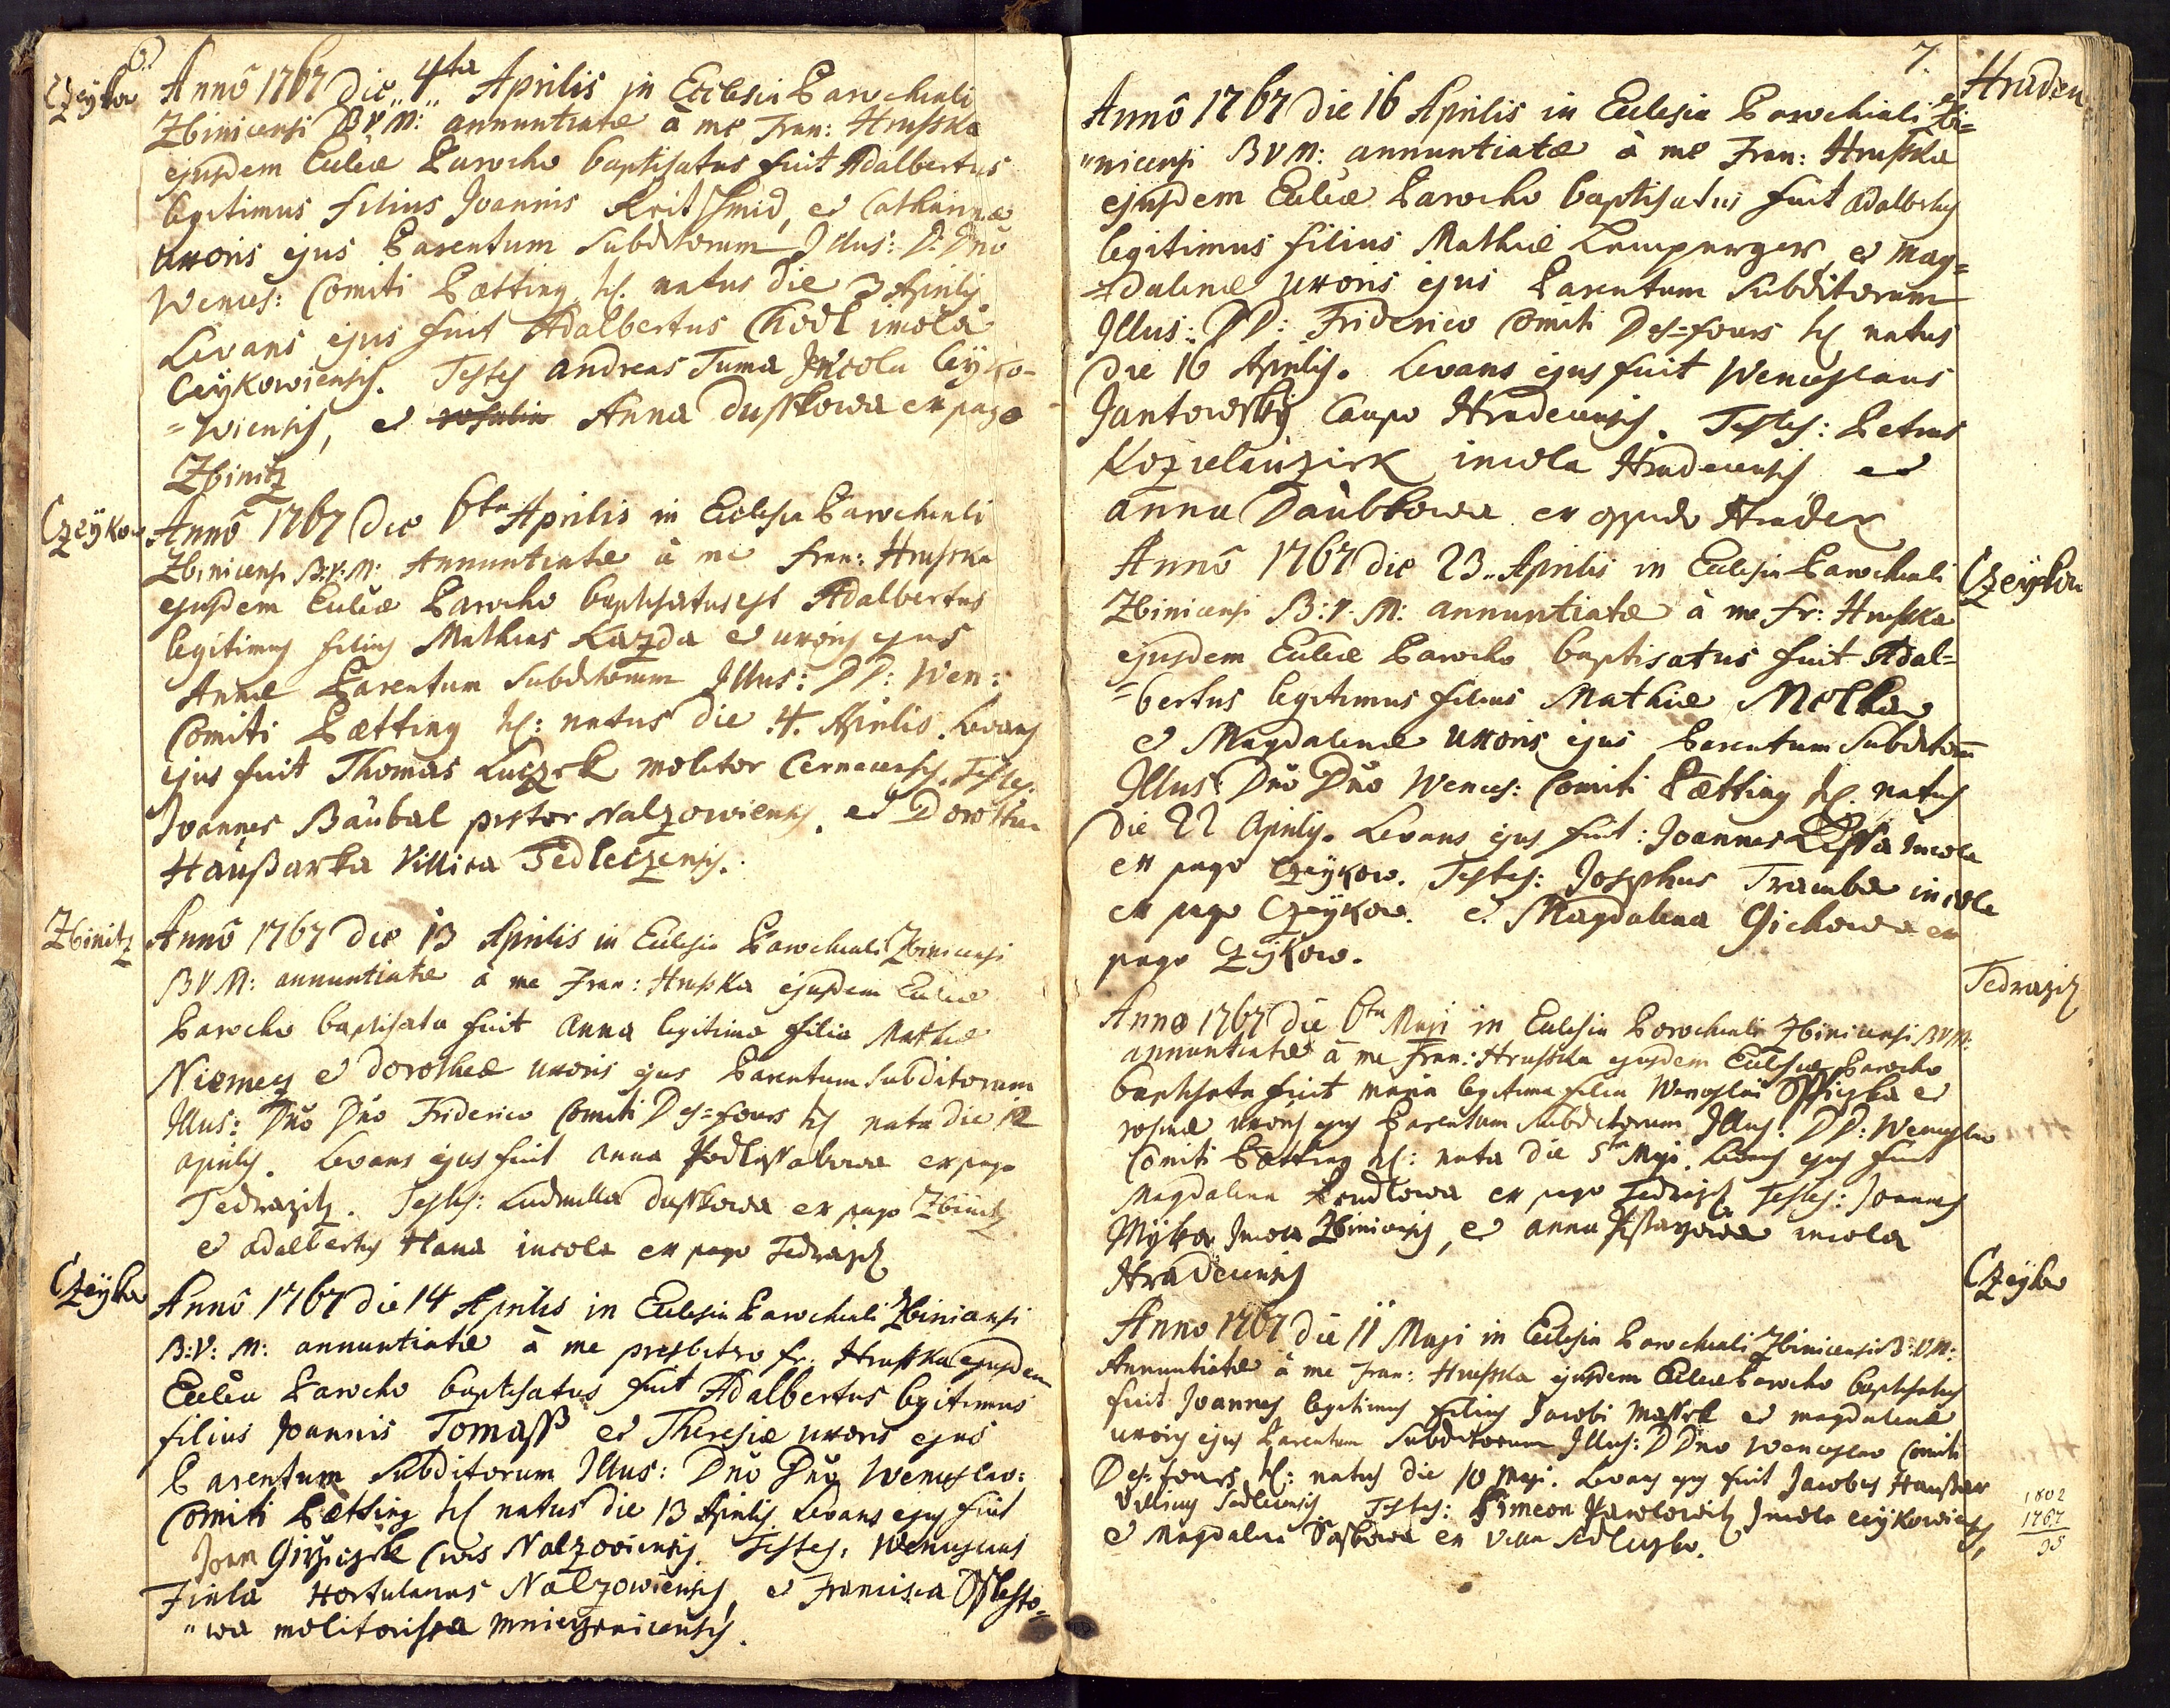 6.
Czeykow
Annô 1767 die 4ta Aprilis in Ecclesia Parochiali
Zbinicensi B V M: annuntiatæ à me Fran: Hrusska
ejusdem Eccliæ Parocho baptisatus fuit Adalbertus
legitimus filius Joannis Kreitsmid, et Catharinæ
uxoris ejus Parentum Subditorum Illus: D: Dno
Wences: Comiti Pætting, natus die 3 Aprilis
Levans ejus fuit Adalbertus Chodl incola
Ceÿkowiensis. Testes Andreas Tuma Incola Ceÿko-
=wiensis, et Anna Dusskowa ex pago
Zbinitz
Czeÿkow
Annô 1767 die 6ta Aprilis in Eclesia Parochiali
Zbinicensi B:V:M: Annuntiatæ à me Fran: Hrusska
ejusdem Eccliæ Parocho baptisatus est Adalbertus
legitimus filius Mathias Kazda et uxoris ejus
Annæ Parentum Subditorum Illus: DD: Wen:
Comiti Pætting natus die 4. Aprilis. Levans
ejus fuit Thomas Luczek molitor Cernecensis. Testes:
Joannes Baübal pistor Nalzowiensis. et Dorothea
Haüßarka Villica Sedleczensis.
Zbinitz
Annô 1767 die 13 Aprilis in Eclesia Parochiali Zbinicensi
B V M: annuntiatæ à me Fran: Hrusska ejusdem Eccliæ
Parocho baptisata fuit Anna legitima filia Mathiæ
Niemecz et Dorotheæ uxoris ejus Parentum Subditorum
Illus: Dno Dno Friderico Comiti Des=fours nata die 12
Aprilis. Levans ejus fuit Anna Podlessakowa ex pago
Tedrazitz. Testes: Ludmilla Dusskowa ex pago Zbinitz
et Adalbertus Hana incola ex pago Tedrazitz
Czeÿkow
Annô 1767 die 14 Aprilis in Eclesia Parochiali Zbinicensi
B:V: M: annuntiatæ à me presbitero Fr: Hrusska ejusdem
Eccliæ Parocho baptisatus fuit Adalbertus legitimus
filius Joannis Tomass et Theresiæ uxoris ejus
Parentum Subditorum Illus: Dno Dno Wenceslao:
Comiti Pætting natus die 13 Aprilis Levans ejus fuit
Joan Girziczek Civis Nalzoviensis. Testes: Wenceslaus
Fiala Hortulanus Nalzowiensis, et Francisca
"wa molitorissa
7.
Hradek
Annô 1767 die 16 Aprilis in Eclesia Parochiali Zbi=
"nicensi B V M: annuntiatæ à me Fran: Hrusska
ejusdem Eccliæ Parocho baptisatus fuit Adalbertus
legitimus filius Mathiæ Lamparger, et Mag=
=dalenæ uxoris ejus Parentum Subditorum
Illus: DD: Friderico Comiti Des=fours natus
die 16 Aprilis. Levans ejus fuit Wenceslaus
Jantowskÿ Caupo Hradecensis. Testes: Petrus
incola Hradecensis et
Anna Daübkowa ex oppido Hradek
Czeÿkow
Annô 1767 die 23. Aprilis in Eclesia Parochiali
Zbinicensi B:V:M: annuntiatæ à me Fr: Hrusska
ejusdem Eccliæ Parocho baptisatus fuit Adal=
=bertus legitimus filius Mathiæ Molka
et Magdalenæ uxoris ejus Parentum Subditorum
Illus: Dno Dno Wences: Comiti Pætting natus
die 22 Aprilis. Levans ejus fuit: Joannes Incola
ex pago Czeÿkow. Testes: Josephus Tramba incola
ex pago Czeÿkow. et Magdalena Gichowa ex
pago Czeÿkow.
Tedrazitz
Anno 1767 die 6ta Maji in Eclesia Parochiali Zbinicensi BVM:
annuntiatæ à me Fran: Hrusska ejusdem Eclesiæ Parocho
baptisata fuit Maria legitima filia Wenceslai et
Rosinæ uxoris ejus Parentum Subditorum Illus: DD: Wenceslao
Comiti Pætting nata die 5ta Maji. Levans ejus fuit
Magdalena ex pago Tedrazitz Testes: Joannes
Mÿka Incola Zbinicensis, et Anna incola
Hradecensis
Czeÿkow
Anno 1767 die 11 Maji in Eclesia Parochiali Zbinicensi B:VM:
Annuntiatæ à me Fran: Hrusska ejusdem Eccliæ Parocho baptisatus
fuit Joannes legitimus filius Jacobi Massek et Magdalenæ
uxoris ejus Parentum Subditorum Illus: D Dno Wenceslao Comiti
Des=fours natus die 10 Maji. Levans ejus fuit Jacobus Haußar
Villicus Sedlecensis Testes: Simeon Pawlowitz Incola Ceÿkowiensis,
et Magdalena ex villa Sedleczko.
1802
1767
35